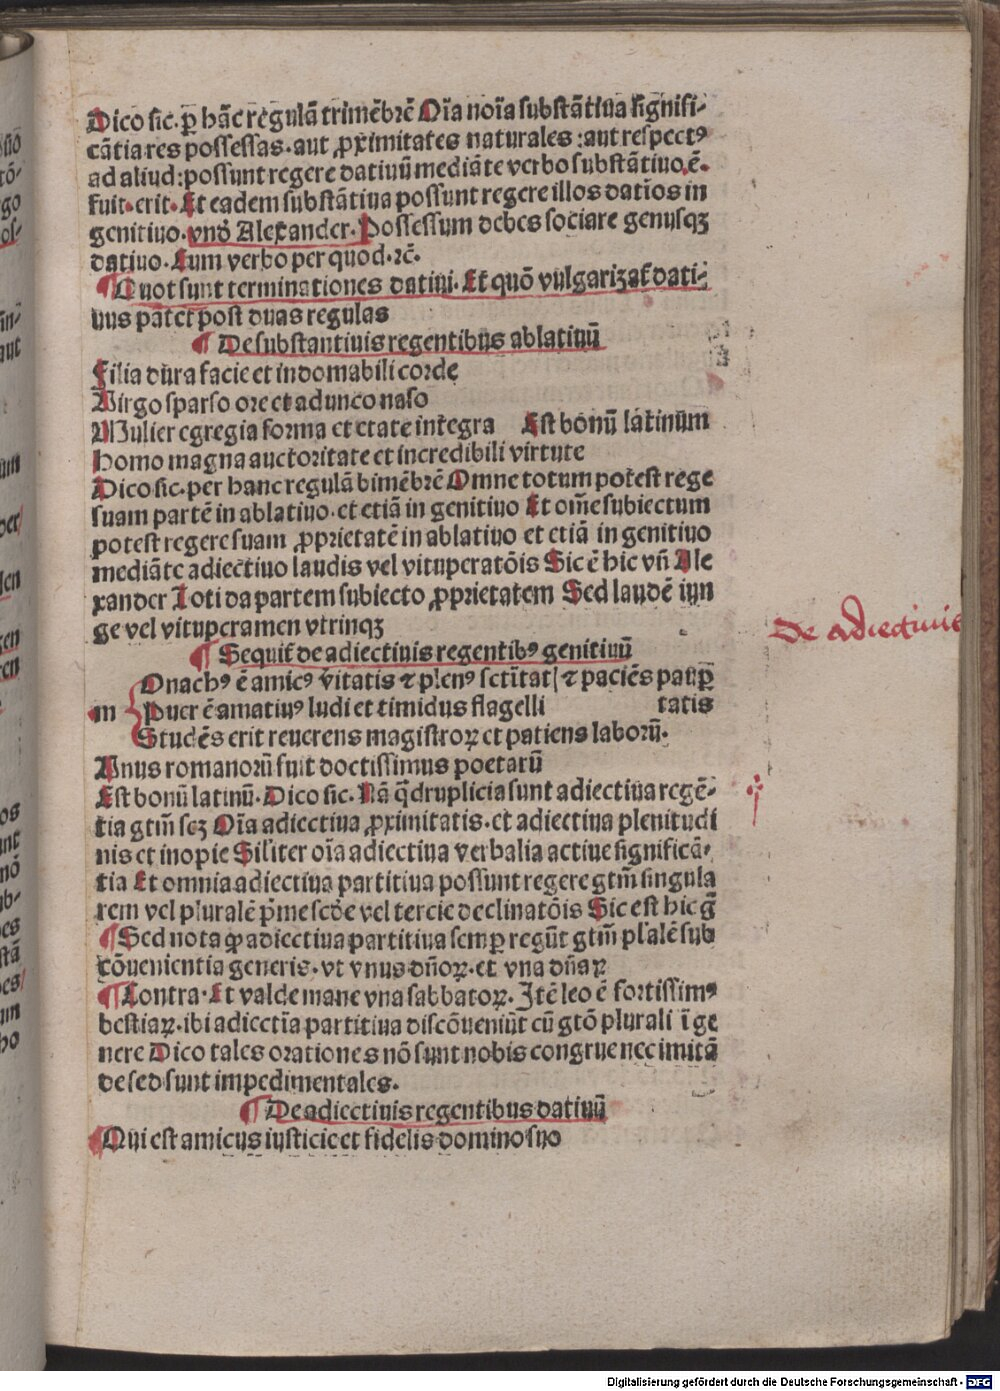 Dico sic. ꝑ hãc regulã trimẽbrẽ Oĩa noĩa substãtiua signifi⸗
cãtia res possessas. aut ꝓximitates naturales: aut respectꝰ
ad aliud: possunt regere datiuũ mediãte verbo substãtiuo. ẽ.
fuit. erit. Et eadem substãtiua possunt regere illos datĩos in
genitiuo. vnõ Alexander. Possessum debes sociare genusqꝫ
datiuo. Cum verbo per quod. ⁊c̃.
¶ Quot sunt terminationes datiui. Et quõ vulgarizat̃ dati⸗
uus patet post duas regulas
¶ De substantiuis regentibus ablatiuũ
Filia dura facie et indomabili corde
Virgo sparso ore et adunco naso
Mulier egregia forma et etate integra Est bonũ latinum
Homo magna auctoritate et incredibili virtute
Dico sic. per hanc regulã bimẽbrẽ Omne totum potest rege
suam partẽ in ablatiuo. et etiã in genitiuo Et om̃e subiectum
potest regere suam ꝓprietatẽ in ablatiuo et etiã in genitiuo
mediãte adiectiuo laudis vel vituperatõis Sic ẽ hic vñ Ale
xander Toti da partem subiecto ꝓprietatem Sed laudẽ iun
ge vel vituperamen vtrinqꝫ
¶ Sequit̃ de adiectiuis regentibꝰ genitiuũ
De adiectiuis
Onachꝰ ẽ amicꝰ ṽitatis ⁊ plenꝰ sctĩtat| ⁊ paciẽs pauꝑ
m Puer ẽ amatiuꝰ ludi et timidus flagelli tatis
Studẽs erit reuerens magistroꝝ et patiens laborũ.
Vnus romanorũ fuit doctissimus poetarũ
Est bonũ latinũ. Dico sic. Nã q̃druplicia sunt adiectiua regẽ⸗
tia gtm̃ scꝫ Oĩa adiectiua ꝓximitatis. et adiectiua plenitudi
nis et inopie Sil̃iter oĩa adiectiua verbalia actiue significã⸗
tia Et omnia adiectiua partitiua possunt regere gtm̃ singula
rem vel pluralẽ p̃me scd̃e vel tercie declinatõis Sic est hic g̃
¶ Sed nota ꝙ adiectiua partitiua semꝑ regũt gtm̃ pl̃alẽ sub
cõuenientia generis. vt vnus dñoꝝ. et vna dñaꝝ
¶ Contra. Et valde mane vna sabbatoꝝ. Itẽ leo ẽ fortissimꝰ
bestiaꝝ. ibi adiectĩa partitiua discõueniũt cũ gtõ plurali ĩ ge
nere Dico tales orationes nõ sunt nobis congrue nec imitã
de sed sunt impedimentales.
¶ De adiectiuis regentibus datiuũ
Qui est amicus iusticie et fidelis domino suo
Digitalisierung gefördert durch die Deutsche Forschungsgemeinschaft - DFG